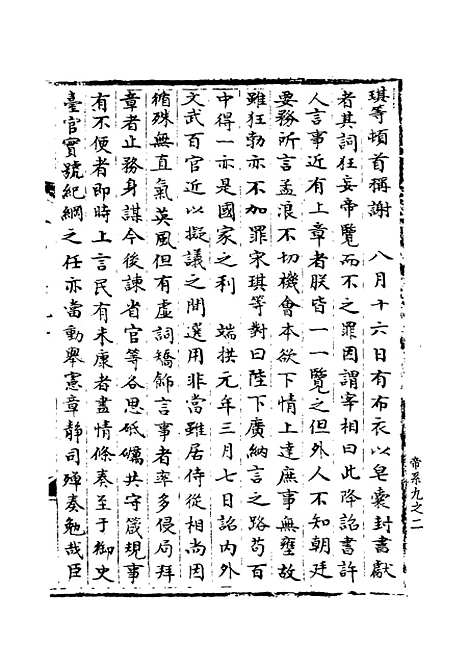 琪等頓首稱謝　八月十六日有布衣以皂囊封書獻
者其詞狂妄帝覽而不之罪因謂宰相曰此降詔書許
人言事近有上章者朕皆一一覽之但外人不知朝廷
要務所言孟浪不切機會本欲下情上達庶事無壅故
雖狂勃亦不加罪宋琪等對曰陛下廣納言之路苟百
中得一亦是國家之利　端拱元年三月七日詔內外
文武百官近以擬議之間選用非當雖居侍從相尚因
循殊無直氣英風但有虛詞矯飾言事者率多侵局拜
章者止務身謀今後諫省官等各思砥礪共守箴規事
有不便者即時上言民有未康者盡情條奏至于御史
臺官實號紀綱之任亦當動舉憲章靜司殫奏勉哉臣
帝系九之二